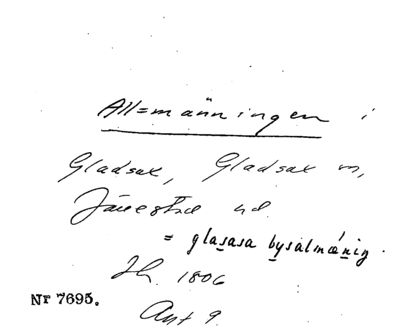 Allmänningen i
Gladsax, Gladsax sn,
Järrestad hd.
= glasasa bysalmæniŋ.
Jh. 1806
Nr 7695.
Akt 9